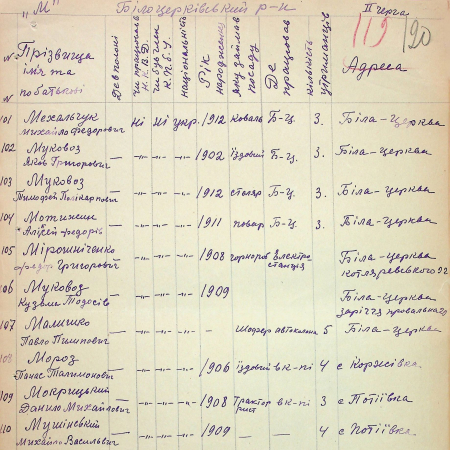 "М" Білоцерківський р-н II черга
119 120
№ № Прізвища ім'я та по батькові Де в полоні чи працював Н.К.В.Д. чи був член К.П.б.У. національність Рік народження яку займав посаду Де працював кількість утриманців Адреса
101 Мехальчук Михайло Федорович ні ні укр. 1912 коваль Б-Ц. 3. Біла-церква
102 Муковоз Яків Григорович — -"- -"- -"- 1902 їздовий Б-Ц. 3. Біла-церква
103 Муковоз Тимофей Полікарпович — -"- -"- -"- 1912 столяр Б-Ц 3. Біла-церква
104 Алксей Федорів — -"- -"- -"- 1911 повар Б-Ц 3. Біла-церква
105 Мірошніченко Федор Григорович — -"- -"- -"- 1908 Електро станція 3. Біла-церква
106 Муковоз Кузьма Тодосів — -"- -"- -"- 1909 Біла-церква
107 Малишко Павло Пименович — -"- -"- -"- - Шофер автоколона 5 Біла-церква
108 Мороз Панас — -"- -"- -"- 1906 їздовий в к-пі 4 с Коржівка
109 Мокрицький Данило Михайлович — -"- -"- -"- 1908 Тракторист в к-пі 3 с Потіївка
110 Мушінський Михайло Васильович — -"- -"- -"- 1909 — — 4 с Потіївка